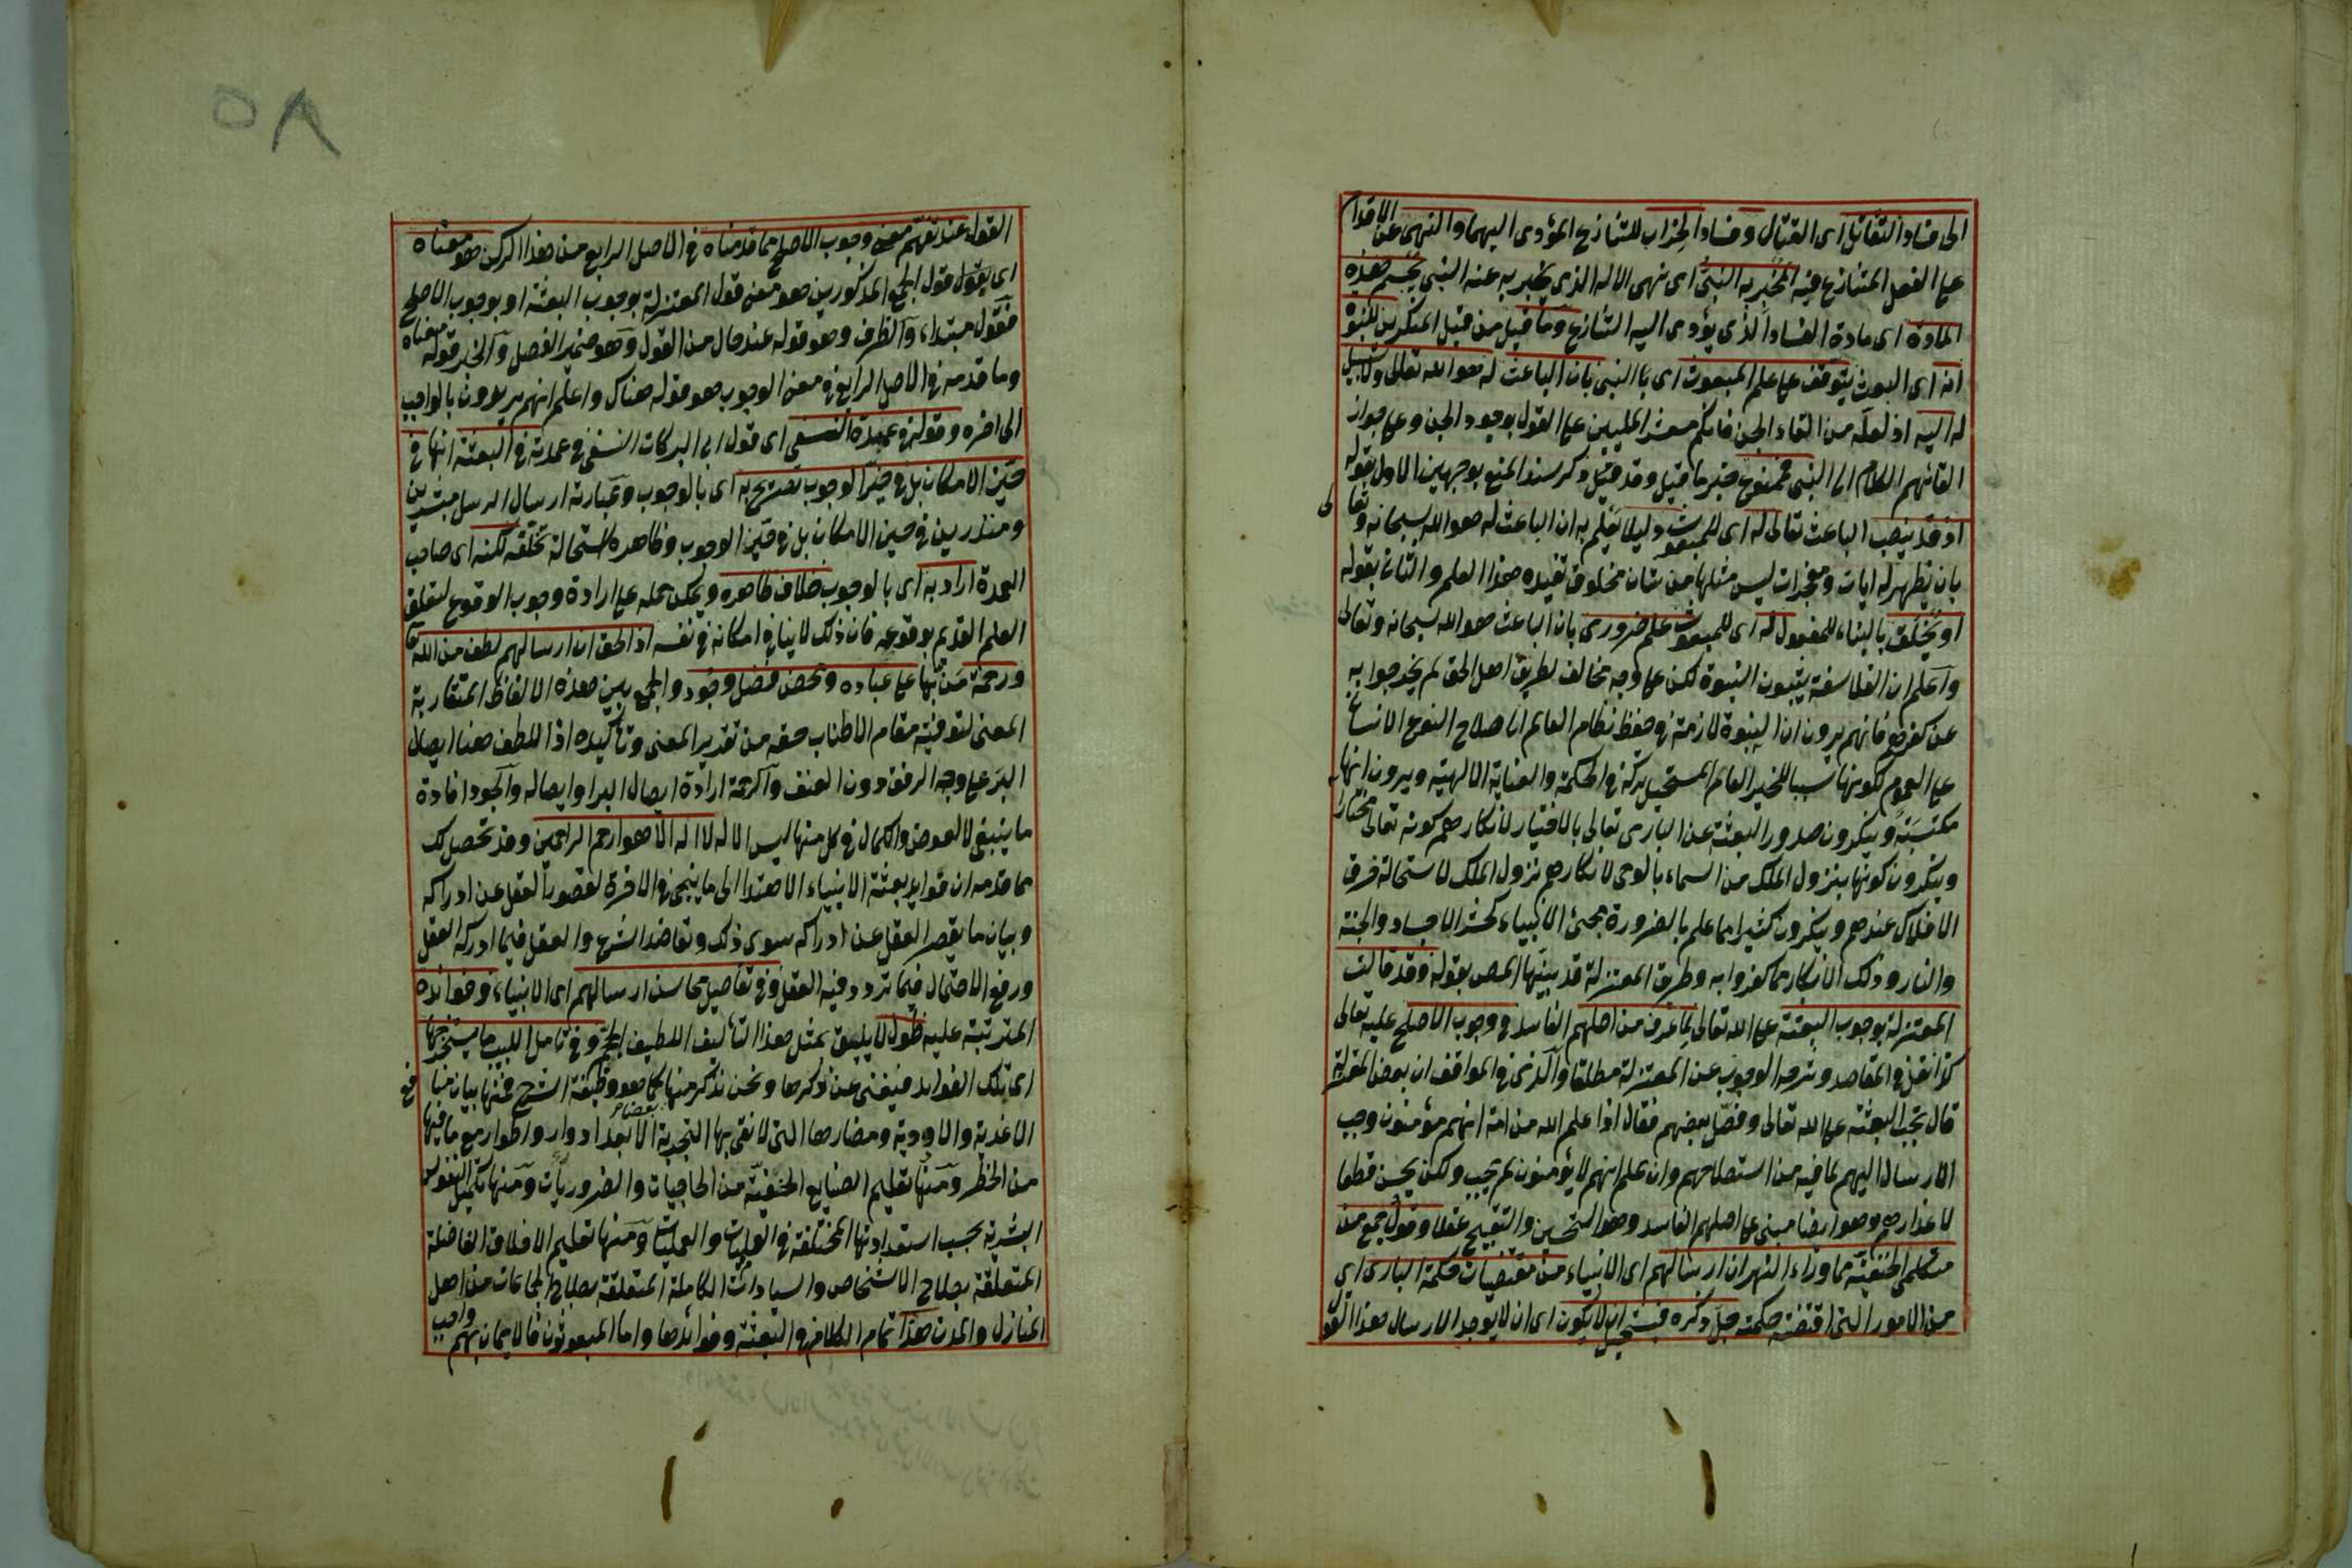 الى فساد التقاتل اى القتال وفساد الخراب للتنازع المؤدى اليهما والنهى عن الاقدام
على الفعل المتنازع فيه المخبر به النبى اى نهى الاله الذى يخبر به عنه النبى يحسم هذه
المادة اى مادة الفساد الذى يؤدى اليه التنازع وما قيل من قبل المنكرين للنبوة
انه اى البعث يتوقف على علم المبعوث اى النبى بان الباعث له هو الله تعالى ولا سبيل
له اليه اذ لعله من القاء الجن فانكم معشر المليين على القول بوجود الجن وعلى جواز
القائهم الكلام الى النبى فممنوع خبر ما قيل وقد قيل ذكر سند المنع بوجهين الاول بقوله
اذ قد ينصب الباعث تعالى له اى للمبعوث دليلا يعلم به ان الباعث له هو الله سبحانه وتعالى
بان يظهر له ايات ومعجزات ليس مثلها من شان مخلوق تفيده هذا العلم والثانى بقوله
او يخلق بالبناء للمفعول له اى للمبعوث علم ضرورى بان الباعث هو الله سبحانه وتعالى
واعلم ان الفلاسفة يثبتون النبوة لكن على وجه مخالف لطريق اهل الحق لم يخرجوا به
عن كفرهم فانهم يرون ان النبوة لازمة فى حفظ نظام العالم اى صلاح النوع الانسانى
على العموم لكونها سببا للخير العام المستحيل تركه فى الحكمة والعناية الالهية ويرون انها
مكتسبة وينكرون صدور البعثة عن البارى تعالى بالاختيار لانكارهم كونه تعالى مختارا
وينكرون كونها بنزول الملك من السماء بالوحى لانكارهم نزول الملك لاستحالة خرق
الافلاك عندهم وينكرون كثيرا مما علم بالضرورة مجئ الانبياء كحشر الاجساد والجنة
والنار وذلك الانكار مما كفروا به وطريق المعتزلة قد بينها المص بقوله وقد قالت
المعتزلة بوجوب البعثة على الله تعالى لما عرف من اصلهم الفاسد فى وجوب الاصلح عليه تعالى
كذا نقل فى المقاصد وشرحه الوجوب عن المعتزلة مطلقا والذى فى المواقف ان بعض المعتزلة
قال تجب البعثة على الله تعالى وفصل بعضهم فقال اذا علم الله من امة انهم مؤمنون وجب
الارسال اليهم لما فيه من استصلاحهم وان علم انهم لا يؤمنون لم يجب ولكن يحسن قطعا
لاعذارهم وهو ايضا مبنى على اصلهم الفاسد وهو التحسين والتقبيح عقلا وقول جمع من
متكلمى الحنفية مما وراء النهر ان ارسالهم اى الانبياء من مقتضيات حكمة البارى اى
من الامور التى اقتضته حكمته جل ذكره فيستحيل ان لا يكون اى ان لا يوجد الارسال هذا القو
القول عند تفهم معنى وجوب الاصلح مما قدمناه فى الاصل الرابع من هذا الركن هو معناه
اى يقول قول الجمع المذكورين هو معنى قول المعتزلة بوجوب البعثة او بوجوب الاصلح
فقول مبتداء والظرف وهو قوله عند حال من القول وهو ضمير الفصل والخبر قوله معناه
وما قدمه فى الاصل الرابع فى معنى الوجوب هو قوله هناك واعلم انهم يريدون بالواجب
الى اخره وقوله فى عمدة النسفى اى قول ابى البركات النسفى فى عمدته فى البعثة انها فى
حيز الامكان بل فى حيز الوجوب تصريح به اى بالوجوب وعبارته ارسال الرسل مبشرين
ومنذرين فى حيز الامكان بل فى حيز الوجوب وظاهره استحالة تخلفه لكنه اى صاحب
العمدة اراد به اى بالوجوب خلاف ظاهره ويمكن حمله على ارادة وجوب الوقوع لتعلق
العلم القديم بوقوعه فان ذلك لا ينافى امكانه فى نفسه اذ الحق ان ارسالهم لطف من الله تعا
ورحمة من بها على عباده ومحض فضل وجود والجمع بين هذه الالفاظ المتقاربة
المعنى لتوفية مقام الاطناب حقه من تقدير المعنى وتاكيده اذ اللطف هنا ايصال
البر على وجه الرفق دون العنف والرحمة ارادة ايصال البر او ايصاله والجود افادة
ما ينبغى لا لعوض والكمال فى كل منها ليس الا له لا اله الا هو ارحم الراحمين وقد تحصل لك
مما قدمه ان فوايد بعثة الانبياء الاهتدا الى ما ينجى فى الاخرة لقصور العقل عن ادراكه
وبيان ما يقصر العقل عن ادراكه سوى ذلك وتعاضد الشرع والعقل فيما ادركه العقل
ورفع الاحتمال فيما تردد فيه العقل وفى تفاصيل محاسن ارسالهم اى الانبياء وفوائده
المترتبة عليه طول لا يليق بمثل هذا التأليف اللطيف الحجم وفى تامل اللبيب ما يستخرجها
اى تلك الفوايد فيغنى عن ذكرها ونحن نذكر منها كما هو وظيفة الشرح فمنها بيان منافع
الاغذية والادوية ومضارها التى لا تفى بها التجربة الا بعد ادوار واطوار مع ما فيها
من الخطر ومنها تعليم الصنايع الخفية من الحاجيات والضروريات ومنها تكميل النفوس
البشرية بحسب استعداداتها المختلفة فى العلميات والعمليات ومنها تعليم الاخلاق الفاضلة
المتعلقة بصلاح الاشخاص والسياسات الكاملة المتعلقة بصلاح الجماعات من اهل
المنازل والمدن هذا تمام الكلام فى البعثة وفوائدها واما المبعوثون فالايمان بهم واجب